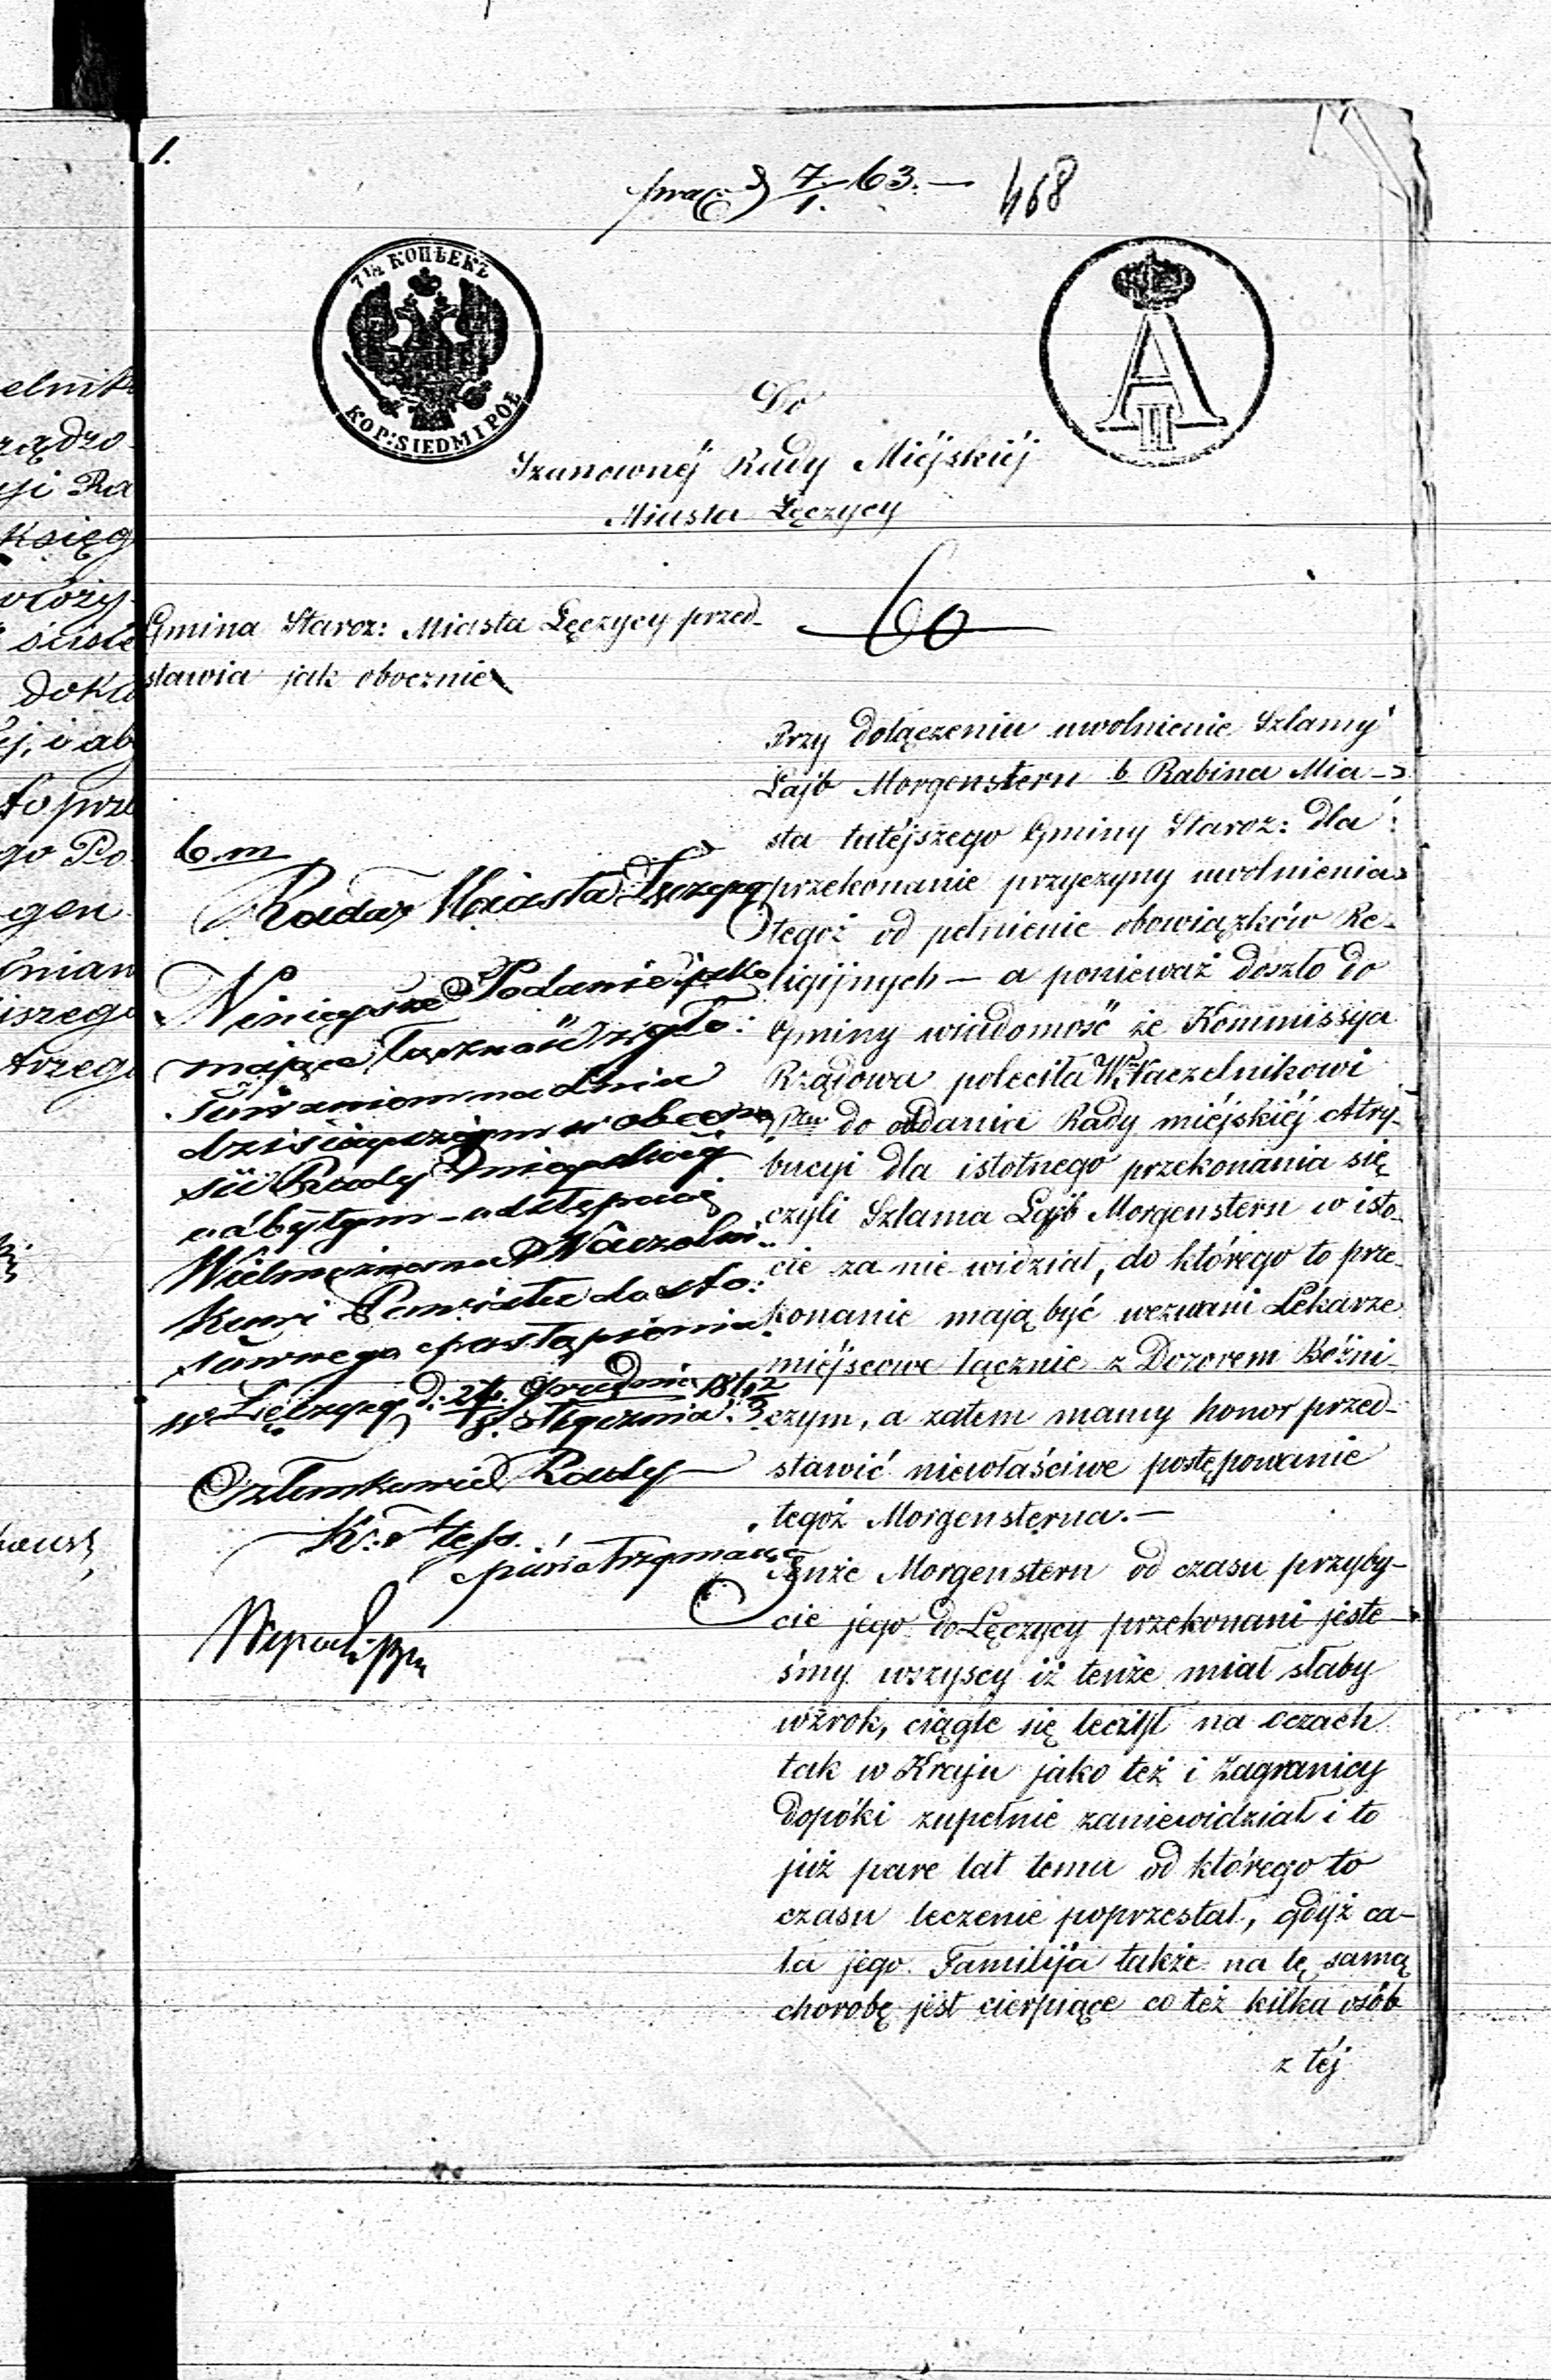 1.
prac: d 7/1. 63. —
468
7½ КОПѢЕКЪ
KOP: SIEDM I PÓŁ
A II
Do
Szanownéj Rady Miéjskiéj
Miasta Łęczycy
60
Gmina Staroz: Miasta Łęczycy przed-
stawia jak obocznie
Przy dołączeniu uwolnienie Szlamy
Lajb Morgenstern b Rabina Mia-
sta tutéjszego Gminy Staroz: dla
przekonanie przyczyny uwolnienia
tegoż od pełnienie obowiązków Re-
ligijnych — a ponieważ doszło do
Gminy wiadomość że Kommissyja
Rządowa poleciła W. Naczelnikowi
Ptu do oddania Rady miéjskiéj Atry-
bucyi dla istotnego przekonania się
czyli Szlama Lajb Morgenstern w isto-
cie za nie widział, do którego to prze-
konanie mają być wezwani Lekarze
miéjscowe łącznie z Dozorem Bóżni-
czym, a zatem mamy honor przed-
stawić niewłaściwe postępowanie
tegoż Morgensterna. —
Tenże Morgenstern od czasu przyby-
cie jego do Łęczycy przekonani jeste-
śmy wszyscy iż tenże miał słaby
wzrok, ciągle się leczył na oczach
tak w Kraju jako też i Zagranicy
dopóki zupełnie zaniewidział i to
już pare lat temu od którego to
czasu leczenie poprzestał, gdyż ca-
ła jego Familija także na tę samą
chorobę jest cierpiące co też kilka osób
z téj
6 m
Rada Miasta Łęczycy
Niniejsze Podanie jako
mające łączność z
na dniu
dzisiejszym w obecno
ści Rady Miejskiéj
odbytym - odstępuje
Wielmożnemu Naczelni-
kowi Powiatu do sto-
sownego postąpienia
w Łęczycy d. 26. Grudnia 1862
Stycznia 3
Członkowie Rady
pióro trzymał
elnik
rządzo
yi Ra
księg
ściśle
doka
ej, i ab
to prze
go Po
gen
trzeg